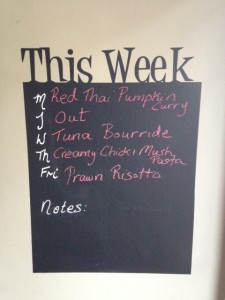 This Week
M Red Thai Pumpkin
Curry
T Out
W Tuna Bourride
Th Creamy Chick & Mush
Pasta
Fri Prawn Risotto
Notes: